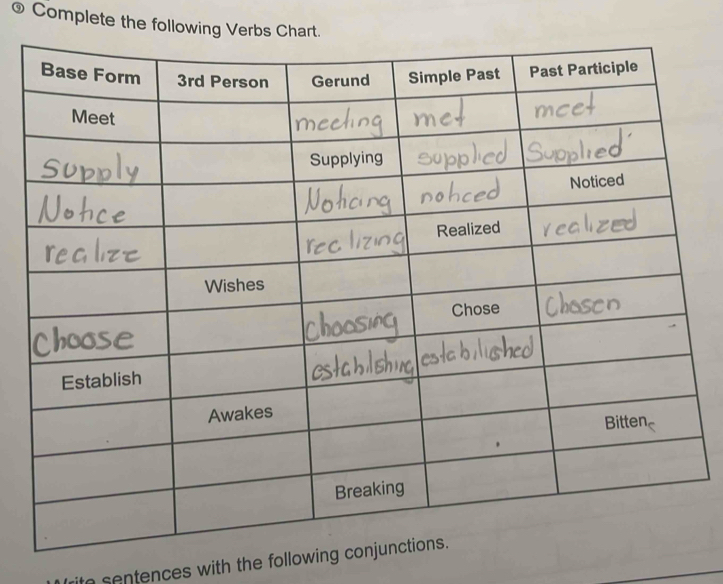 ③ Complete the following Verbs Chart.
Base Form 3rd Person Gerund Simple Past Past Participle
Meet meeting met meet
Supply Supplying supplied Supplied
Notice Noticing noticed Noticed
realize realizing Realized realized
Wishes
Choose Choosing Chose Chosen
Establish estabilshing estabilished
Awakes
Bitten
Breaking
Write sentences with the following conjunctions.